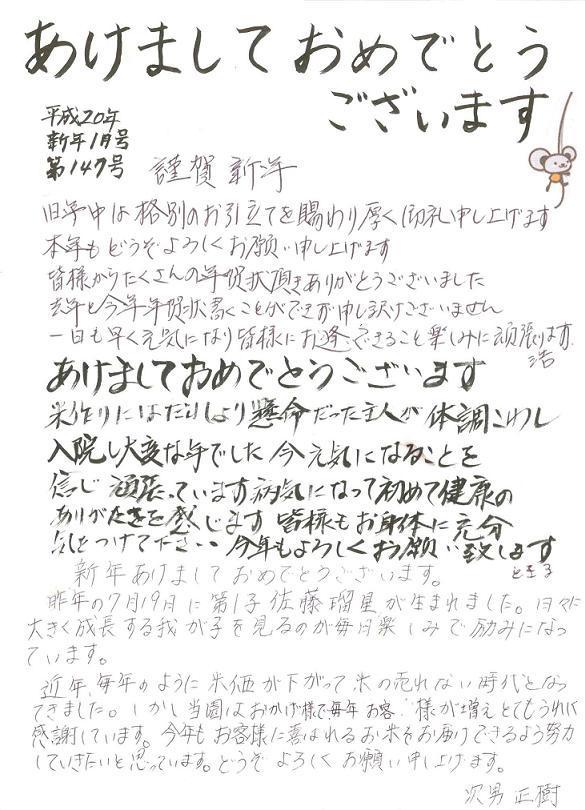 あけましておめでとう
ございます
平成20年
新年1月号
第147号
謹賀新年
旧年中は格別のお引立てを賜わり厚く御礼申し上げます
本年もどうぞよろしくお願い申し上げます
皆様からたくさんの年賀状頂きありがとうございました
去年と今年年賀状書くことができず申し訳ございません
一日も早く元気になり皆様にお逢いできること楽しみに頑張ります
浩
あけましておめでとうございます
米作りにはだれより懸命だった主人が体調こわし
入院し大変な年でした 今元気になることを
信じ頑張っています 病気になって初めて健康の
ありがたさを感じます 皆様もお身体に充分
気をつけて下さい 今年もよろしくお願い致します
新年あけましておめでとうございます。
昨年の7月19日に第1子佐藤瑠星が生まれました。日々に
大きく成長する我が子を見るのが毎日楽しみで励みになっ
ています。
近年、毎年のように米価が下がって米の売れない時代となっ
てきました。しかし当園はおかげ様で毎年お客様が増えとてもうれしく
感謝しています。今年もお客様に喜ばれるお米をお届けできるよう努力
していきたいと思っています。どうぞよろしくお願い申し上げます。
次男 正樹